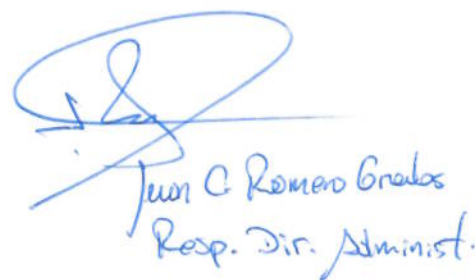 Juan C. Romero Grados
Resp. Dir. Administ.